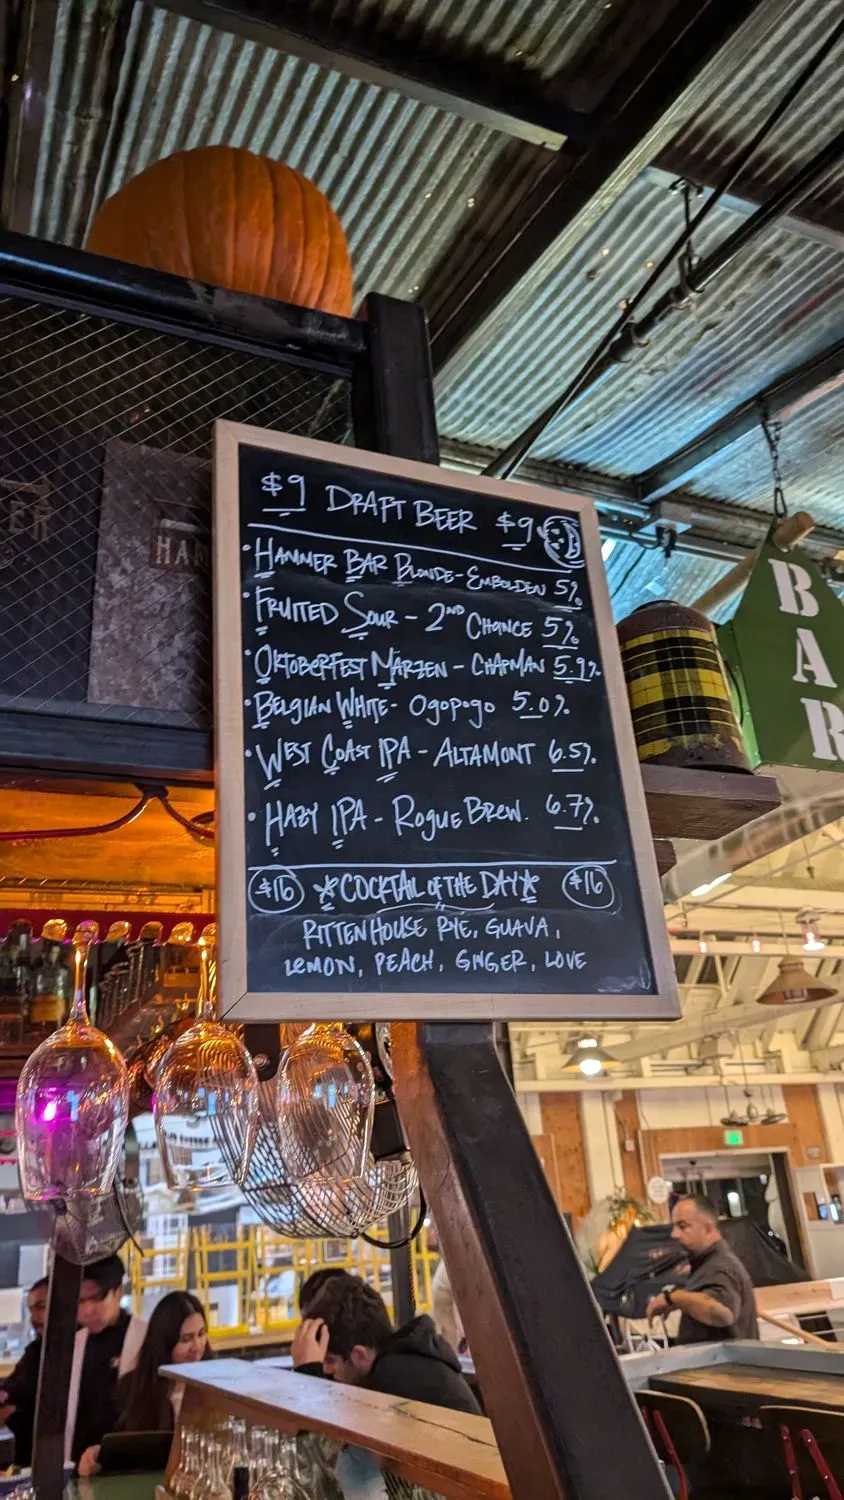 $9 DRAFT BEER $9
• HAMMER BAR BLONDE - EMBOLDEN 5%
• FRUITED SOUR - 2ND CHANCE 5%
• OKTOBERFEST MÄRZEN - CHAPMAN 5.9%
• BELGIAN WHITE - OGOPOGO 5.0%
• WEST COAST IPA - ALTAMONT 6.5%
• HAZY IPA - ROGUE BREW. 6.7%
$16 *COCKTAIL OF THE DAY* $16
RITTENHOUSE RYE, GUAVA,
LEMON, PEACH, GINGER, LOVE
HAM
BAR